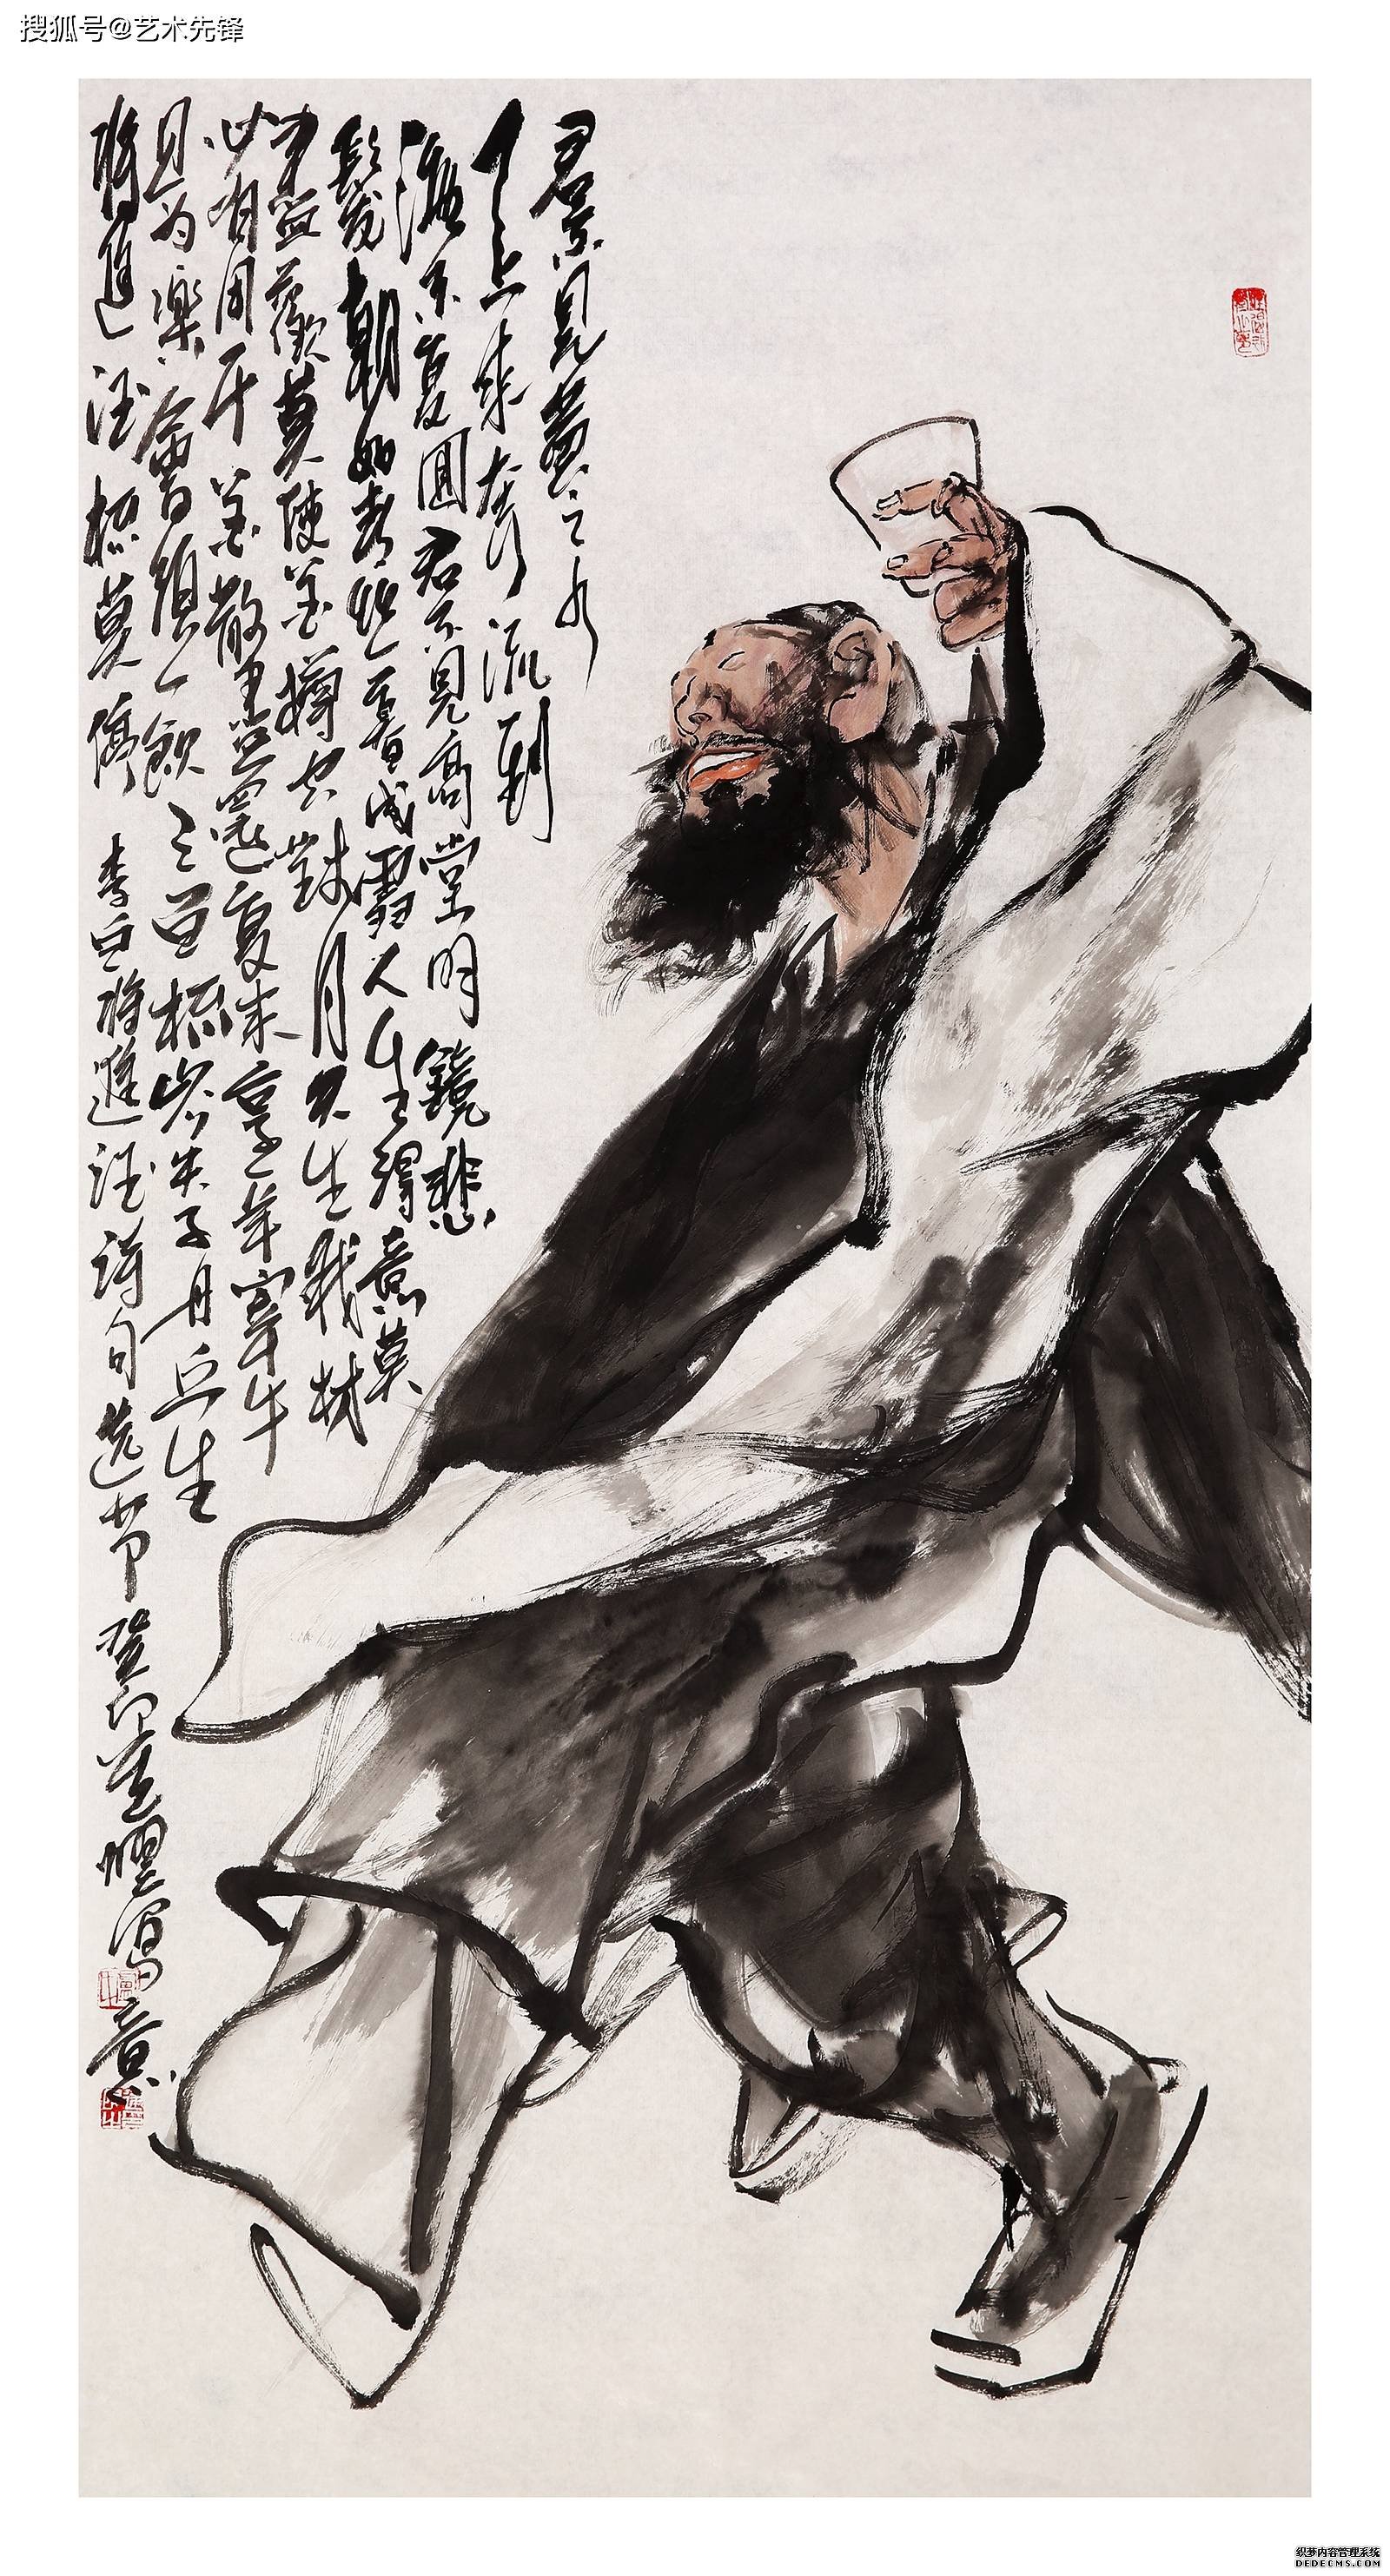 搜狐号@艺术先锋
君不见黄之水
天上来奔流到
海不复回君不見高堂明鏡悲
髮朝如青丝暮成雪人生得意莫
盡歡莫使金樽空對月天生我材
必有用千金散盡還复来烹羊宰牛
且为樂會須一飲三百杯岑夫子丹丘生
将進酒杯莫停 李白将進酒诗句选节 癸卯 耀写意
织梦内容管理系统
DEDECMS.COM